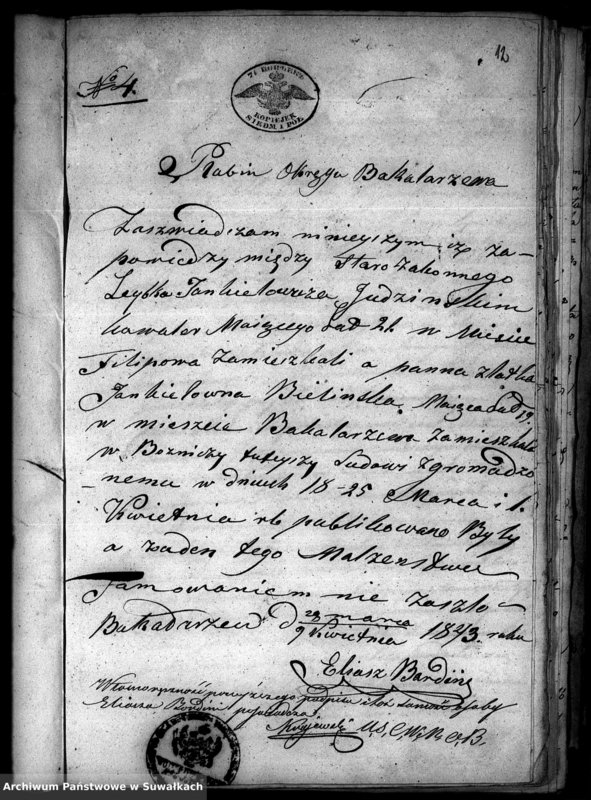 12
No 4.
71 KOPIEJEK
KOPIEJEK
SIEDM I PÓŁ
Rabin Okręgu Bakalarzewa
Zaszwiadczam ninieyszym iż za-
powiedzy między Staro Zakonnego
Leybka Jankielowicza Judzinskim
kawaler Maiącego lad 21. w Mieście
Filipowa Zamieszkali a panna Złatka
Jankielowna Bielinska Maiąca Lad 19.
w mieszcia Bakalarzewa Zamieszkała
w Bozniczy tuteyszy Ludowi zgromadzo
nemu w dniach 18 - 25 Marca i 1.
Kwietnia rb publikowane Były
a zaden tego Malzenstwa
Tamowaniem nie zaszło
Bakalarzew d 28 marca
9 Kwietnia 1843. roku
Eliasz Bardin
Własnoręczność powyższego podpisu
Eliasza Bardin poświadcza
Krajewski
Archiwum Państwowe w Suwałkach